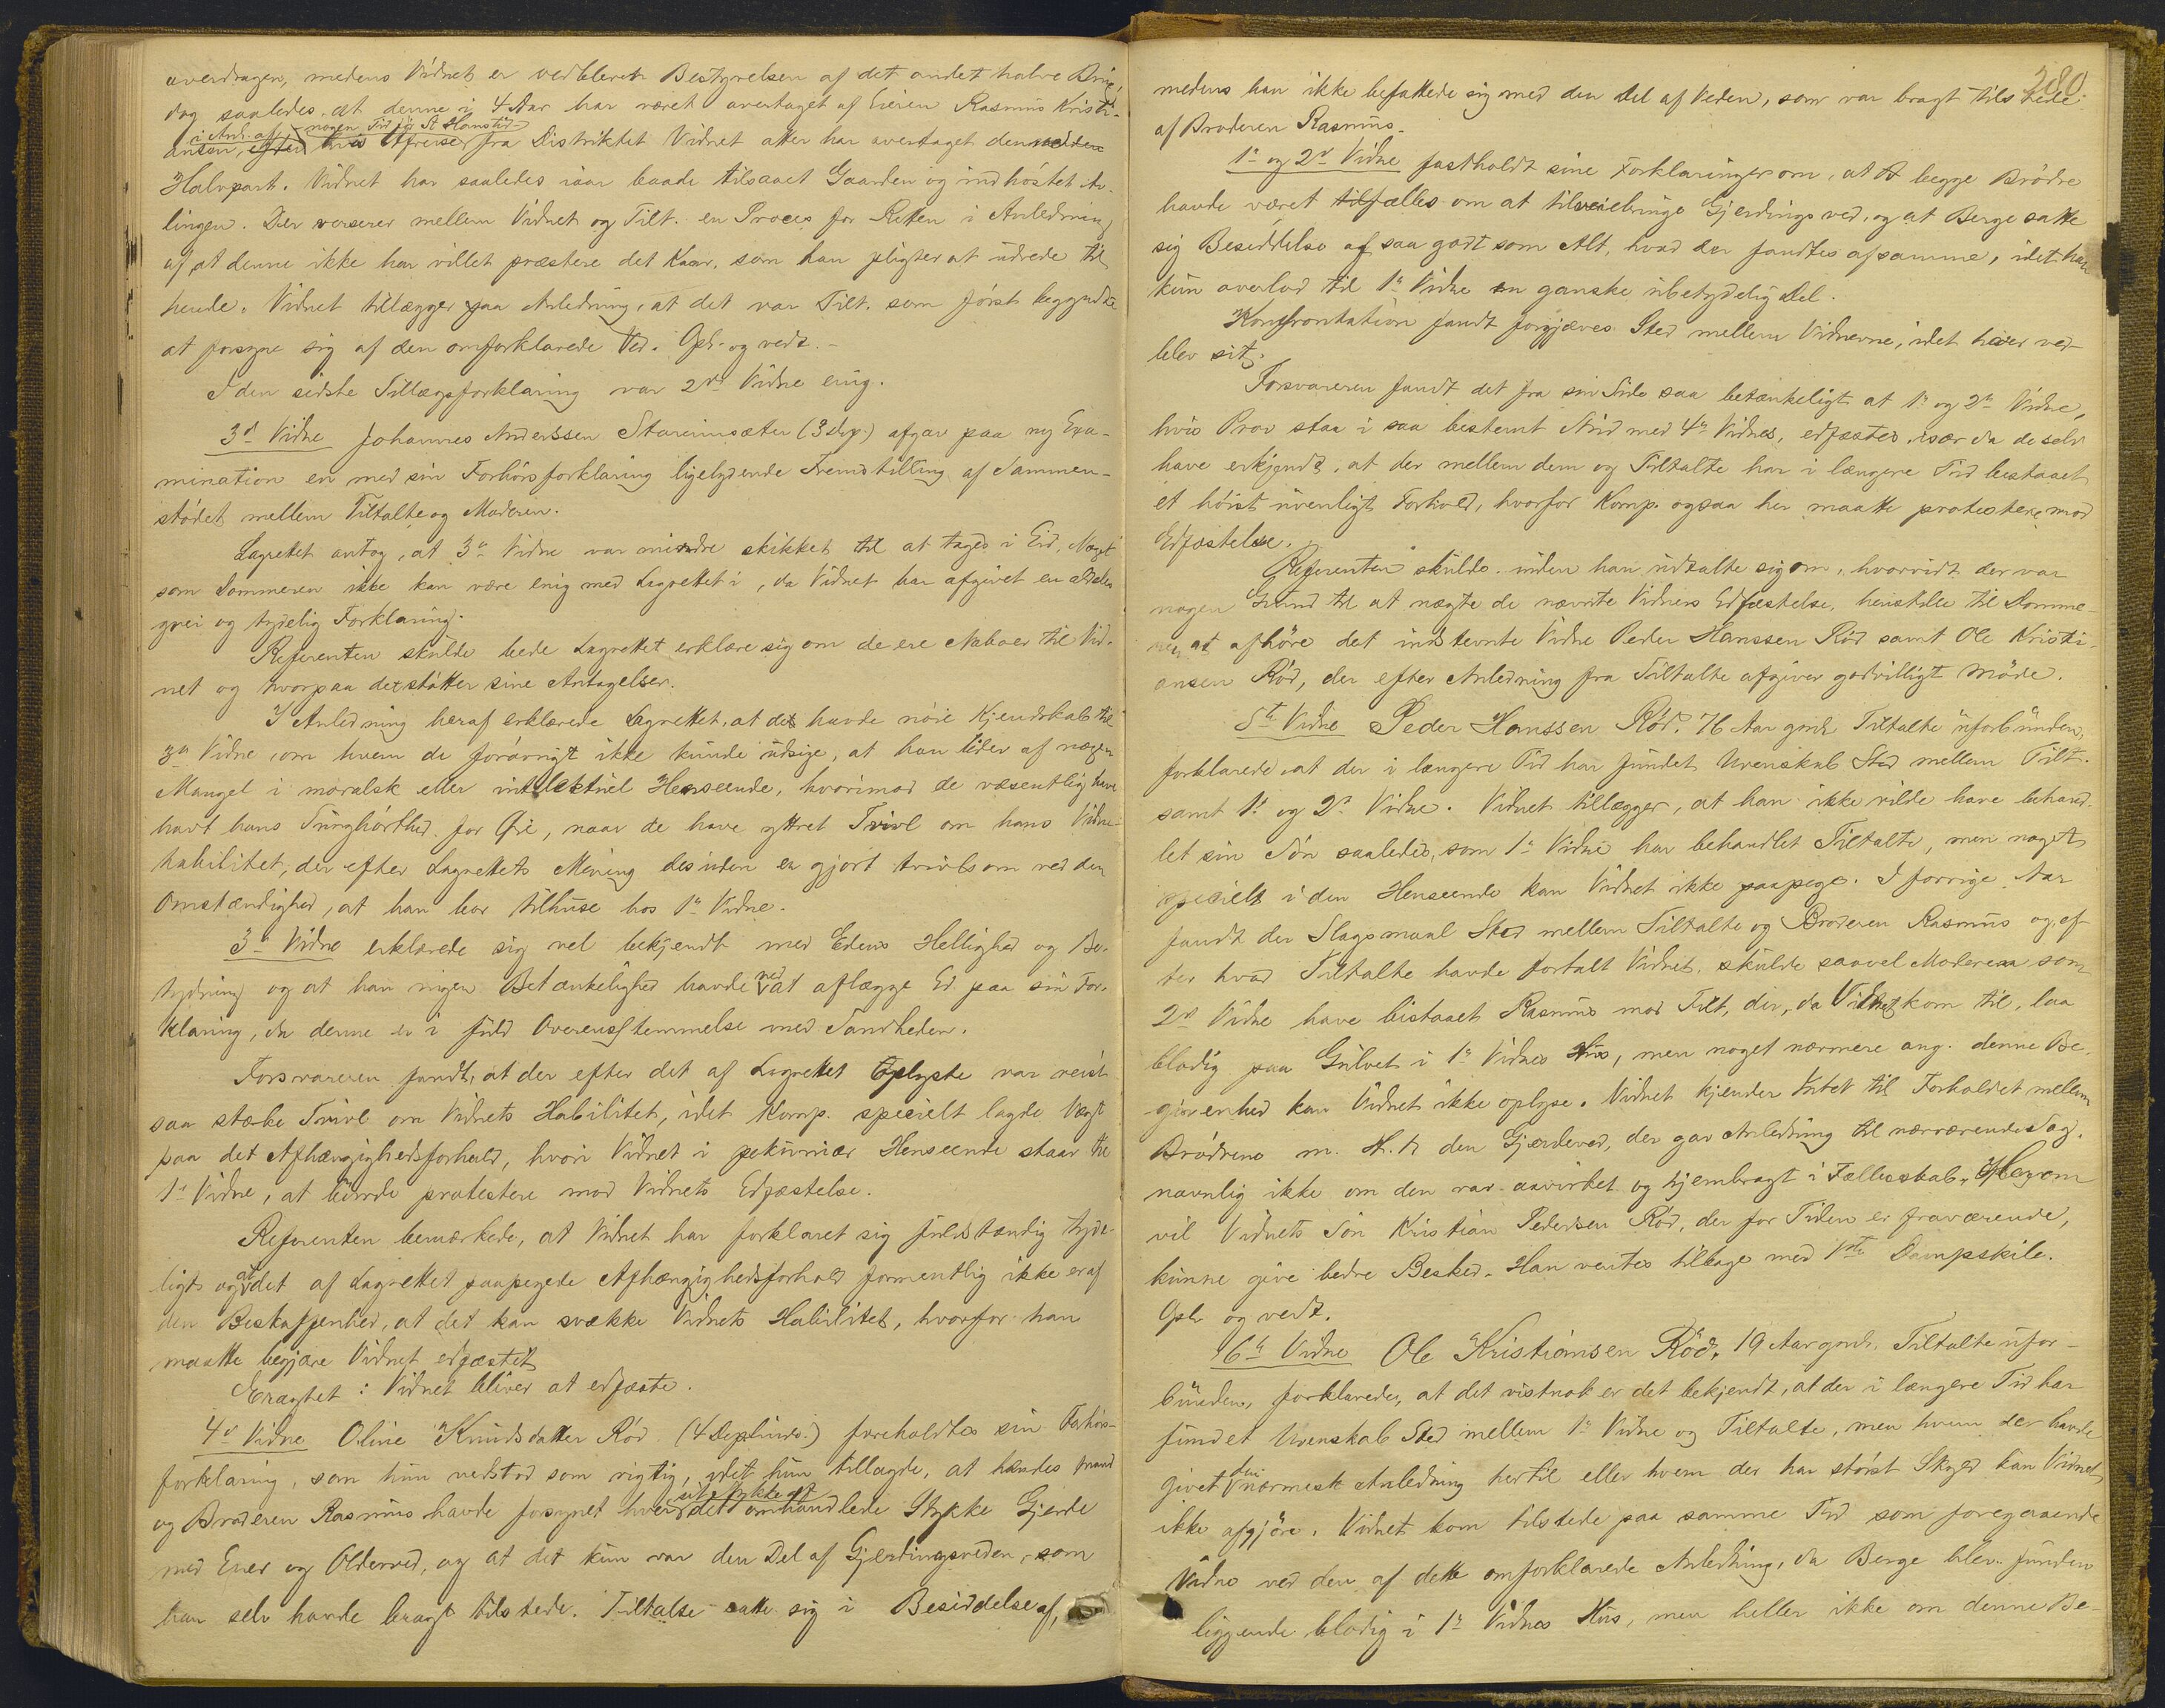 overdragen, medens Vidnet er vedblevet Bestyrelsen af det andet halve Brug,
dog saaledes at denne i 4 Aar har været overtaget af Eieren Rasmus Kristi-
i Anl. af nogen Tid før St Hanstid
ansen, efter hvis Afreise fra Distriktet Vidnet atter har overtaget den
Halvpart. Vidnet har saaledes iaar baade tilsaaet Gaarden og indhøstet Av-
lingen. Der verserer mellem Vidnet og Tilt. en Proces for Retten i Anledning
af at denne ikke har villet præstere det Kaar, som han pligter at udrede til
hende. Vidnet tillægger paa Anledning, at det var Tilt. som først begyndte
at forsyne sig af den omforklarede Ved. Opl. og vedt.-
I den sidste Tillægsforklaring var 2det Vidne enig.
3d Vidne Johannes Anderssen Stareimsæter (3 dep.) afgav paa ny Exa-
mination en med sin Forhørsforklaring ligelydende Fremstilling af Sammen-
stødet mellem Tiltalte og Moderen.
Lagrettet antog, at 3die Vidne var mindre skikket til at tages i Eid, Noget
som Dommeren ikke kan være enig med Lagrettet i, da Vidnet har afgivet en aldeles
grei og tydelig Forklaring.
Referenten skulde bede Lagrettet erklære sig om de ere Naboer til Vid-
net og hvorpaa det støtter sine Antagelser.
I Anledning heraf erklærede Lagrettet, at det havde nøie Kjendskab til
3die Vidne, om hvem de forøvrigt ikke kunde udsige, at han lider af nogen
Mangel i moralsk eller intellektuel Henseende, hvorimod de væsentlig have
havt hans Tunghørthed for Øie, naar de have yttret Tvivl om hans Vidne-
habilitet, der efter Lagrettets Mening desuden er gjort tvivlsom ved den
Omstændighed, at han bor tilhuse hos 1ste Vidne.
3die Vidne erklærede sig vel bekjendt med Edens Hellighed og Be-
tydning og at han ingen Betænkelighed havde ved at aflægge Ed paa sin For-
klaring, da denne er i fuld Overensstemmelse med Sandheden.
Forsvareren fandt, at der efter det af Lagrettet Oplyste var reist
saa stærke Tvivl om Vidnets Habilitet, idet Komp. specielt lagde Vægt
paa det Afhængighedsforhold, hvori Vidnet i pekuniær Henseende staar til
1ste Vidne, at burde protestere mod Vidnets Edfæstelse.
Referenten bemærkede, at Vidnet har forklaret sig fuldstændig tyde-
ligt og at det af Lagrettet paapegede Afhængighedsforhold formentlig ikke er af
den Beskaffenhed, at det kan svække Vidnets Habilitet, hvorfor han
maatte begjære Vidnet edfæstet
Eragtet: Vidnet bliver at edfæste.
4de Vidne Oline Knudsdatter Rød (4 Dep.) foreholdtes sin Forhørs-
forklaring, som hun vedstod som rigtig, idet hun tillagde, at hendes Mand
og Broderen Rasmus havde forsynet hver sit Stykke af det omhandlede Stykke Gjerde
med Ener og Olderved, og at det kun var den Del af Gjerdingsveden, som
han selv havde bragt tilstede, Tiltalte satte sig i Besiddelse af,
280
medens han ikke befattede sig med den Del af Veden, som var bragt tilstede
af Broderen Rasmus.
1ste og 2det Vidne fastholdt sine Forklaringer om, at begge Brødre
havde været fælles om at tilveiebringe Gjerdingsved, og at Berge satte
sig Besiddelse af saa godt som Alt, hvad der fandtes af samme, idet han
kun overlod til 1ste Vidne en ganske ubetydelig Del.
Konfrontation fandt forgjæves Sted mellem Vidnerne, idet hver ved-
blev sit.
Forsvareren fandt det fra sin Side saa betænkeligt at 1ste og 2det Vidne,
hvis Prov staa i saa bestemt Strid med 4de Vidnes, edfæstes, især da de selv
have erkjendt, at der mellem dem og Tiltalte har i længere Tid bestaaet
et høist uvenligt Forhold, hvorfor Komp. ogsaa her maatte protestere mod
Edfæstelse.
Referenten skulde inden han udtalte sig om, hvorvidt der var
nogen Grund til at nægte de nævnte Vidners Edfæstelse, henstille til Domme-
ren at afhøre det indstevnte Vidne Peder Hanssen Rød samt Ole Kristi-
ansen Rød, der efter Anledning fra Tiltalte afgiver godvilligt Møde.
5te Vidne Peder Hanssen Rød, 76 Aar gml. Tiltalte uforbunden,
forklarede, at der i længere Tid har fundet Uvenskab Sted mellem Tilt.
samt 1ste og 2det Vidne. Vidnet tillægger, at han ikke vilde have behand-
let sin Søn saaledes, som 1ste Vidne har behandlet Tiltalte, men noget
specielt i den Henseende kan Vidnet ikke paapege. I forrige Aar
fandt der Slagsmaal Sted mellem Tiltalte og Broderen Rasmus og ef-
ter hvad Tiltalte havde fortalt Vidnet, skulde saavel Moderen som
2det Vidne have bistaaet Rasmus mod Tilt, der, da Vidnet kom til, laa
blodig paa Gulvet i 1ste Vidnes Hus, men noget nærmere ang. denne Be-
givenhed kan Vidnet ikke oplyse. Vidnet kjender Intet til Forholdet mellem
Brødrene m. H. t. den Gjerdeved, der gav Anledning til nærværende Sag,
navnlig ikke om den var aavirket og hjembragt i Fællesskab. Herom
vil Vidnets Søn Kristian Pedersen Rød, der for Tiden er fraværende,
kunne give bedre Besked. Han ventes tilbage med 1ste Dampskib.
Opl. og vedt.
6te Vidne Ole Kristiansen Rød, 19 Aar gml. Tiltalte ufor-
bunden, forklarede, at det vistnok er det bekjendt, at der i længere Tid har
fundet Uvenskab Sted mellem 1ste Vidne og Tiltalte, men hvem der havde
givet den nærmest Anledning hertil eller hvem der har størst Skyld kan Vidnet
ikke afgjøre. Vidnet kom tilstede paa samme Tid som foregaaende
Vidne ved den af dette omforklarede Anledning, da Berge blev funden
liggende blodig i 1ste Vidnes Hus, men heller ikke om denne Be-